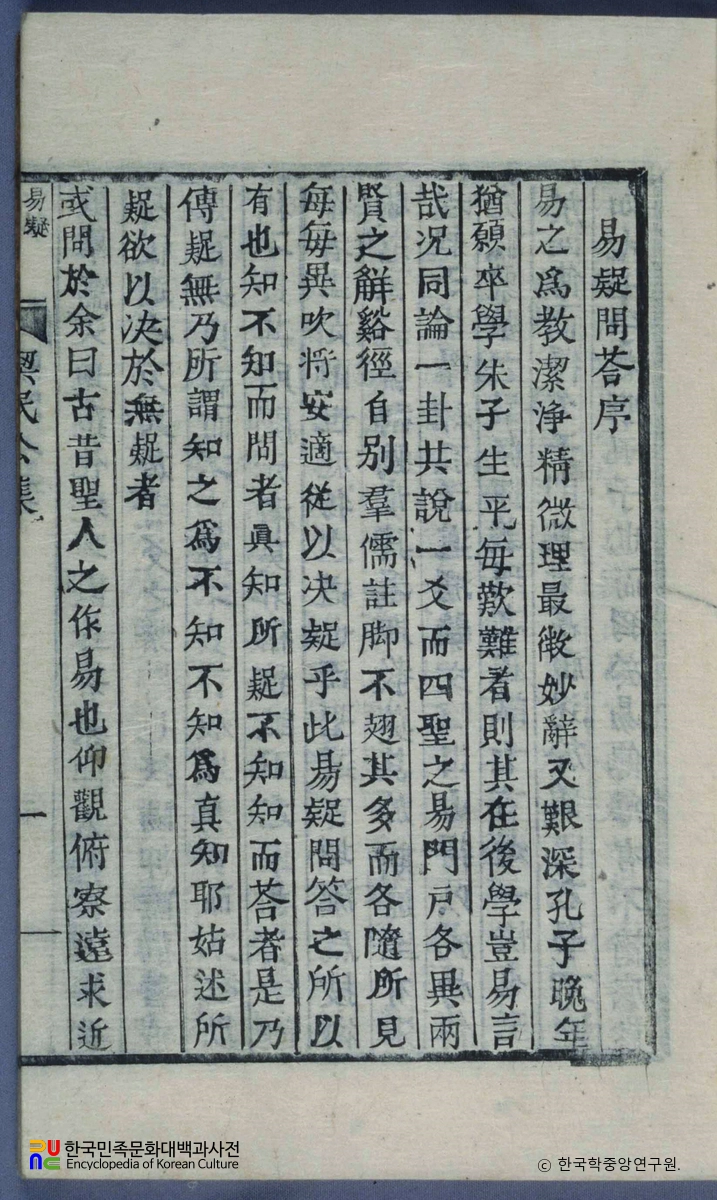 易疑問荅序
易之爲教潔淨精微理最微妙辭又艱深孔子晚年
猶願卒學朱子生平每歎難者則其在後學豈易言
哉况同論一卦共說一爻而四聖之易門戶各異兩
賢之觧谿徑自别羣儒註脚不翅其多而各隨所見
每每異吹将安適從以决疑乎此易疑問答之所以
有也知不知而問者眞知所疑不知知而荅者是乃
傳疑無乃所謂知之爲不知不知爲真知耶姑述所
疑欲以决於無疑者
或問於余曰古昔聖人之作易也仰觀俯察遠求近
易疑
一
한국민족문화대백과사전
Encyclopedia of Korean Culture
© 한국학중앙연구원.